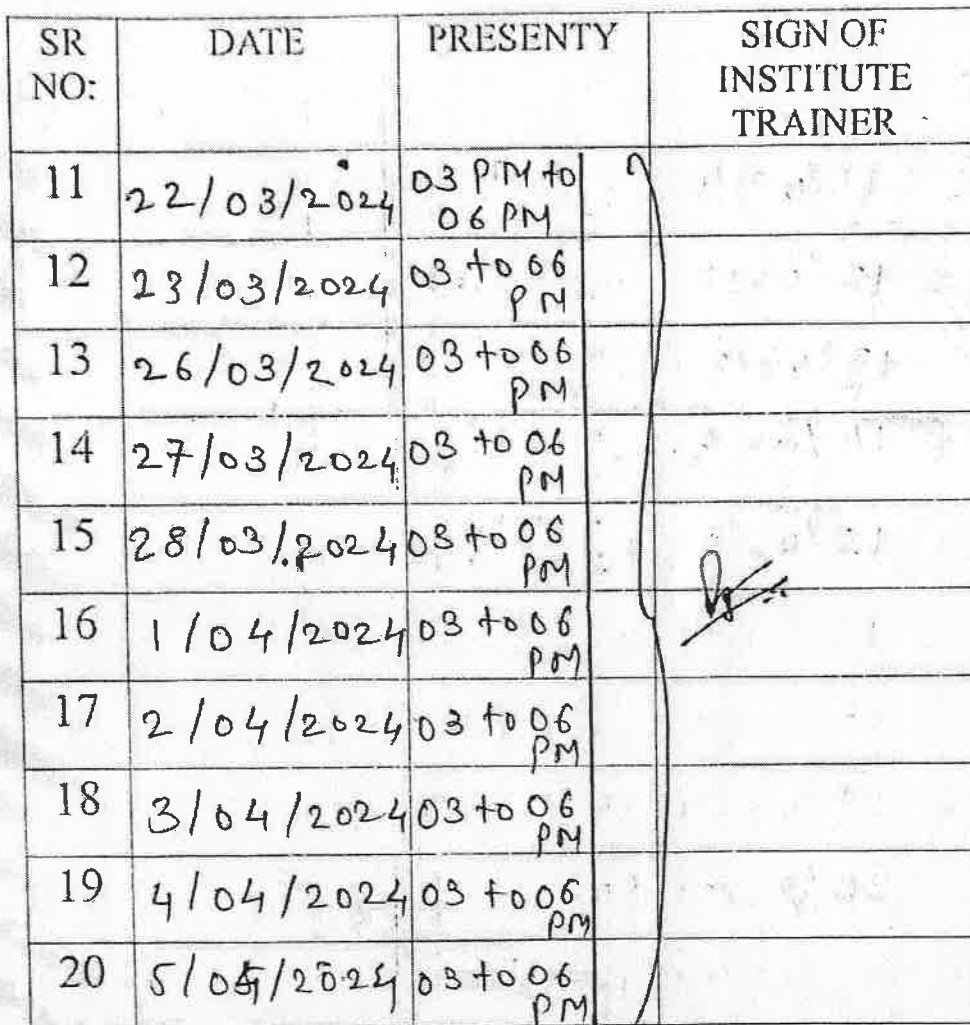 SR NO: DATE PRESENTY SIGN OF INSTITUTE TRAINER
11 22/03/2024 03 PM to 06 PM
12 23/03/2024 03 to 06 PM
13 26/03/2024 03 to 06 PM
14 27/03/2024 03 to 06 PM
15 28/03/2024 03 to 06 PM
16 1/04/2024 03 to 06 PM
17 2/04/2024 03 to 06 PM
18 3/04/2024 03 to 06 PM
19 4/04/2024 03 to 06 PM
20 5/04/2024 03 to 06 PM